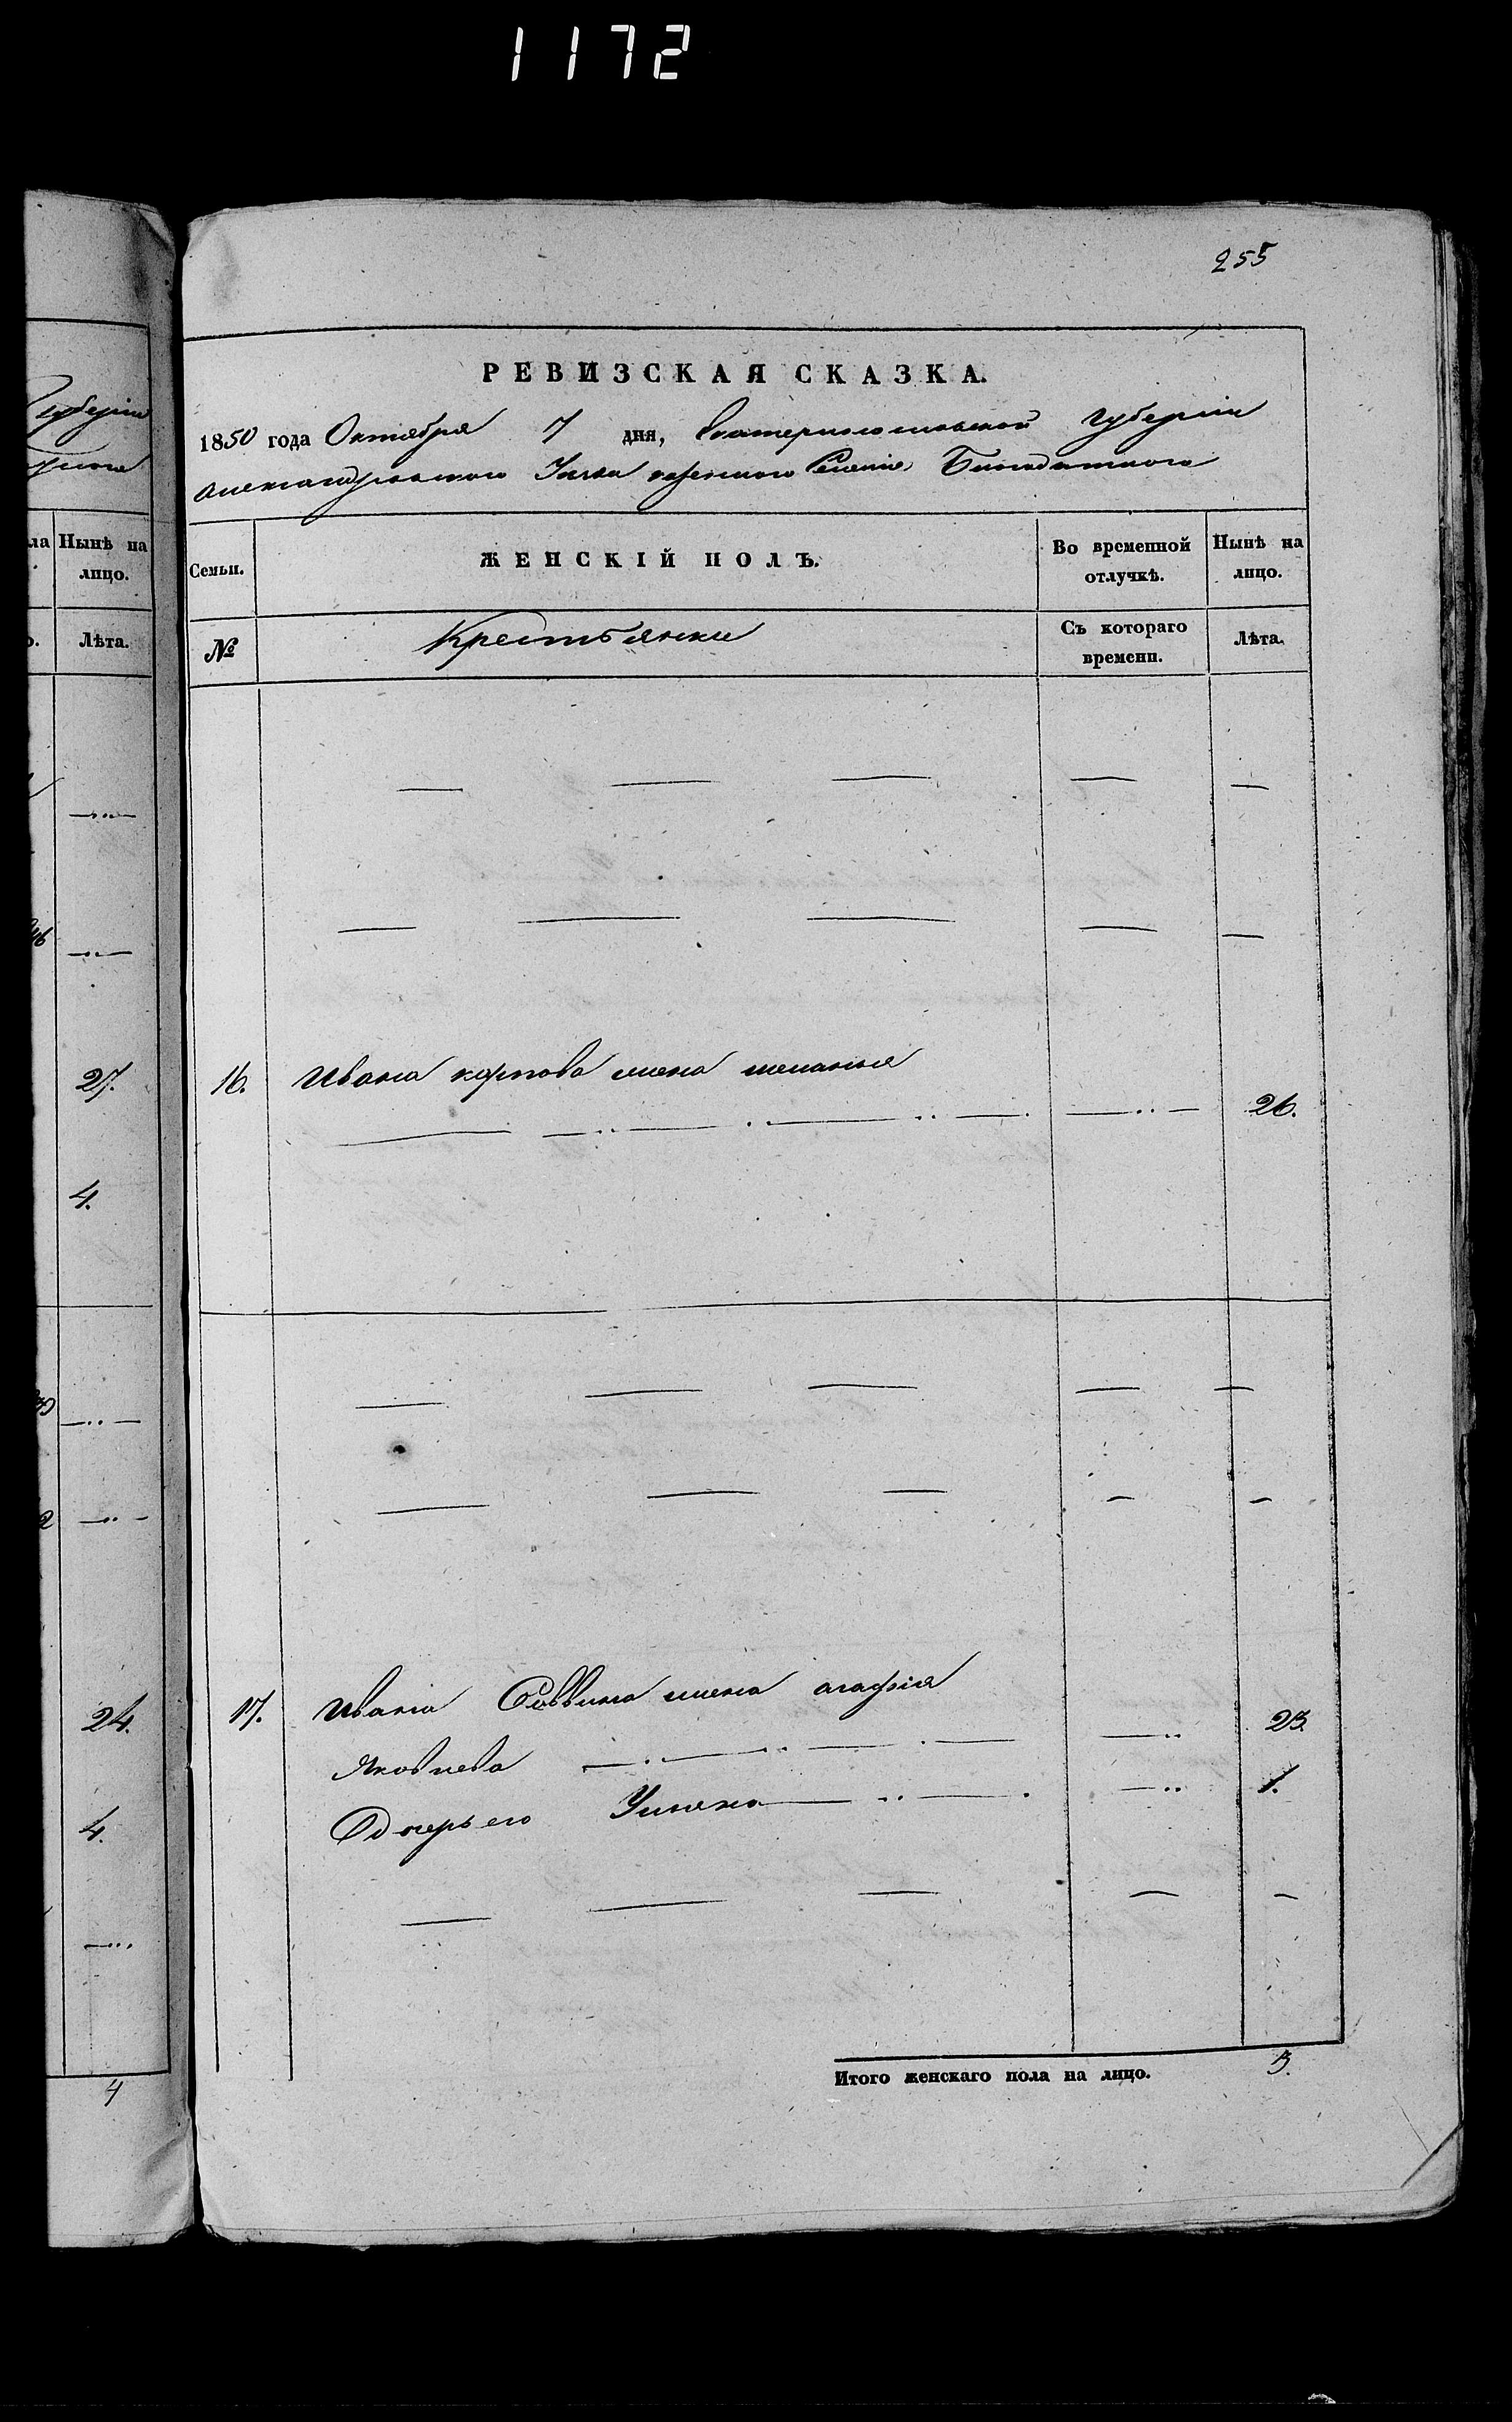 1172
255
Губернiи
27.
4.
24.
4.
4
ла Нынѣ на
лицо.
Лѣта.
РЕВИЗСКАЯ СКАЗКА.
1850 года Октября 7 дня, Екатеринославской Губернiи
Александровского Уезда казенного Селенiя Благодатного
Семьи. ЖЕНСКIЙ ПОЛЪ. Во временной отлучкѣ. Нынѣ на лицо.
№ Крестьянки Съ котораго времени. Лѣта.
16. Ивана карпова жена меланья
26.
17. Ивана Саввина жена агафiя
Яковлева 23.
Дочерь его Ульяна 1.
Итого женскаго пола на лицо. 3.